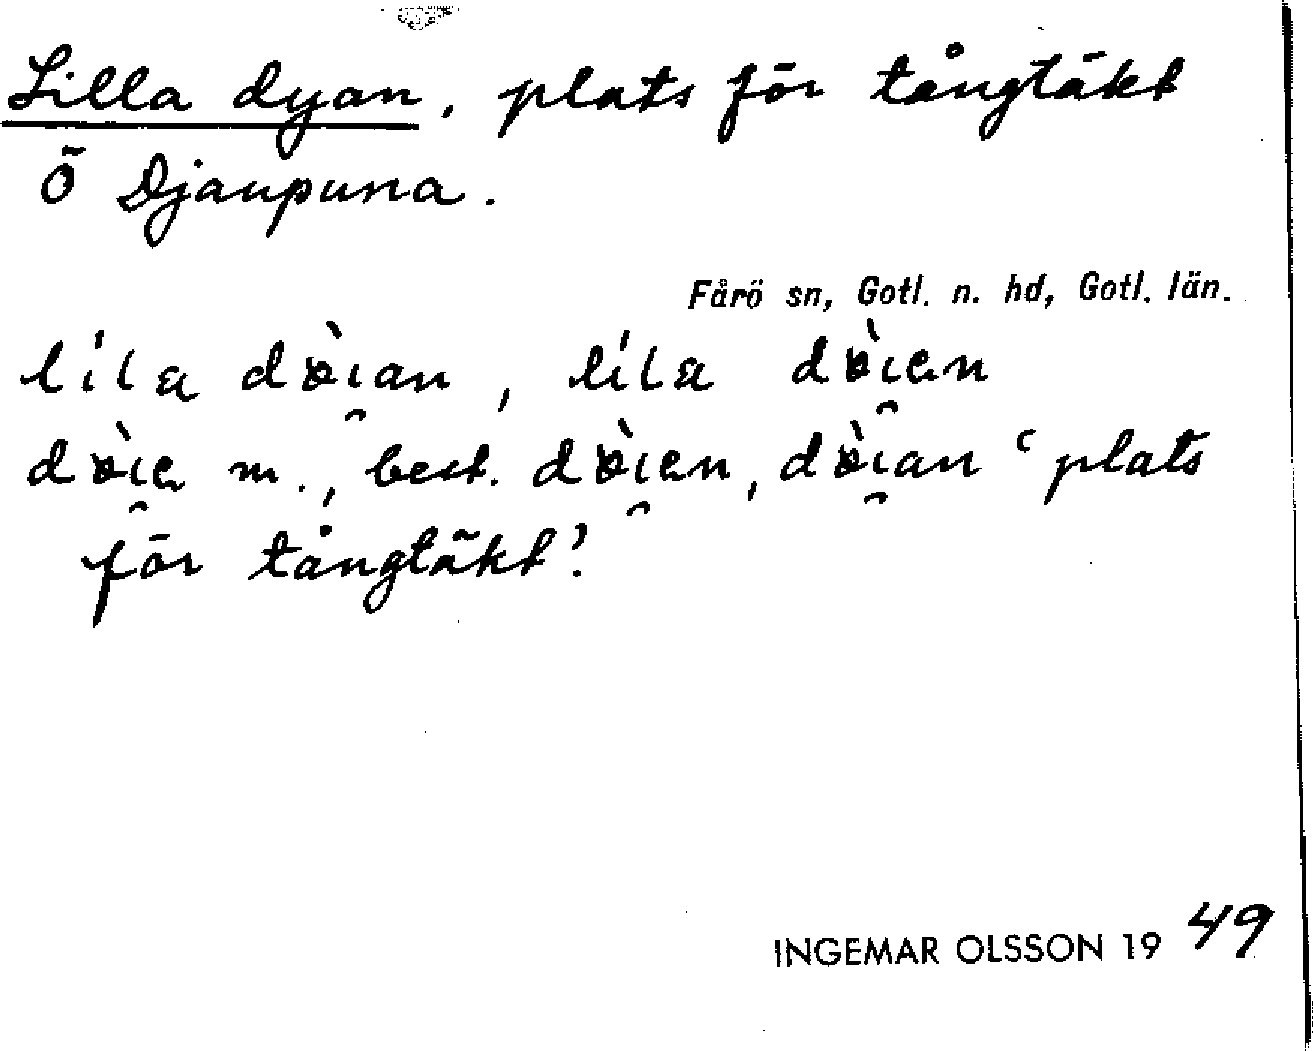 Lilla dyan, plats för tångtäkt
Ö Djaupuna.
Fårö sn, Gotl. n. hd, Gotl. län.
lila dòian, lila dòien
dòie m., best. dòien, dòian ‘plats
för tångtäkt’.
INGEMAR OLSSON 1949